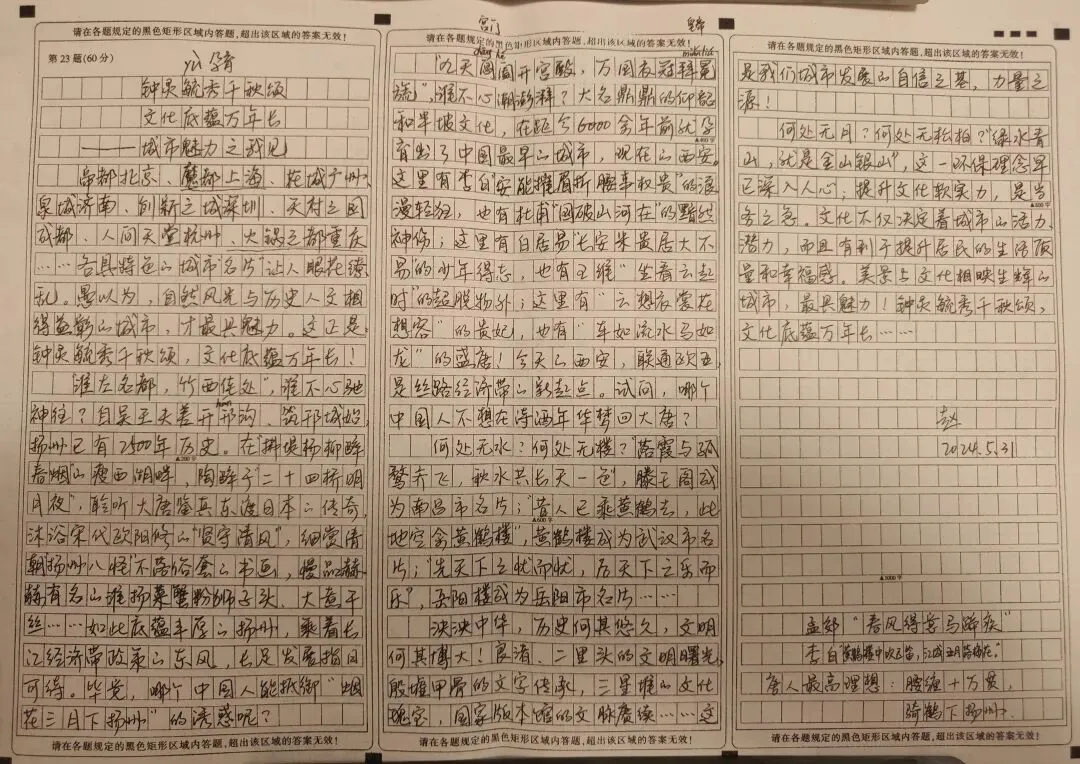 请在各题规定的黑色矩形区域内答题,超出该区域的答案无效!
第23题(60分)
yù 孕育
钟灵毓秀千秋颂
文化底蕴万年长
——城市魅力之我见
帝都北京、魔都上海、花城广州、
泉城济南、创新之城深圳、天府之国
成都、人间天堂杭州、火锅之都重庆
……各具特色的城市"名片"让人眼花缭
乱。愚以为,自然风光与历史人文相
得益彰的城市,才最具魅力。这正是:
钟灵毓秀千秋颂,文化底蕴万年长!
"淮左名都,竹西佳处",谁不心驰
神往?自吴王夫差开邗沟、筑邗城始,
扬州已有2500年历史。在"拂堤杨柳醉
▲200字
春烟"的瘦西湖畔,陶醉于"二十四桥明
月夜",聆听大唐鉴真东渡日本的传奇,
沐浴宋代欧阳修的"贤守清风",细赏清
朝"扬州八怪"不落俗套的书画,慢品赫
赫有名的淮扬菜蟹粉狮子头、大煮干
丝……如此底蕴丰厚的扬州,乘着长
江经济带政策的东风,长足发展指日
可待。毕竟,哪个中国人能抵御"烟
花三月下扬州"的诱惑呢?
请在各题规定的黑色矩形区域内答题,超出该区域的答案无效!
宫门
请在各题规定的黑色矩形区域内答题,超出该区域的答案无效!
"九天阊阖开宫殿,万国衣冠拜冕
旒",谁不心潮澎湃?大名鼎鼎的仰韶
和半坡文化,在距今6000余年前就孕
▲400字
育出了中国最早的城市,现在的西安。
这里有李白"安能摧眉折腰事权贵"的浪
漫轻狂,也有杜甫"国破山河在"的黯然
神伤;这里有白居易"长安米贵居大不
易"的少年得志,也有王维"坐看云起
时"的超脱物外;这里有"云想衣裳花
想容"的贵妃,也有"车如流水马如
龙"的盛唐!今天的西安,联通欧亚,
是丝路经济带的新起点。试问,哪个
中国人不想在诗酒年华梦回大唐?
何处无水?何处无楼?"落霞与孤
鹜齐飞,秋水共长天一色",滕王阁成
为南昌市名片;"昔人已乘黄鹤去,此
▲600字
地空余黄鹤楼",黄鹤楼成为武汉市名
片;"先天下之忧而忧,后天下之乐而
乐",岳阳楼成为岳阳市名片……
泱泱中华,历史何其悠久,文明
何其博大!良渚、二里头的文明曙光,
殷墟甲骨的文字传承,三星堆的文化
瑰宝,国家版本馆的文脉赓续……这
请在各题规定的黑色矩形区域内答题,超出该区域的答案无效!
请在各题规定的黑色矩形区域内答题,超出该区域的答案无效!
是我们城市发展的自信之基,力量之
源!
何处无月?何处无松柏?"绿水青
山,就是金山银山",这一环保理念早
已深入人心;提升文化软实力,是当
▲800字
务之急。文化不仅决定着城市的活力、
潜力,而且有利于提升居民的生活质
量和幸福感。美景与文化相映生辉的
城市,最具魅力!钟灵毓秀千秋颂,
文化底蕴万年长……
2024.5.31
▲1000字
孟郊"春风得意马蹄疾"
李白"黄鹤楼中吹玉笛,江城五月落梅花。"
唐人最高理想:腰缠十万贯,
骑鹤下扬州。
请在各题规定的黑色矩形区域内答题,超出该区域的答案无效!